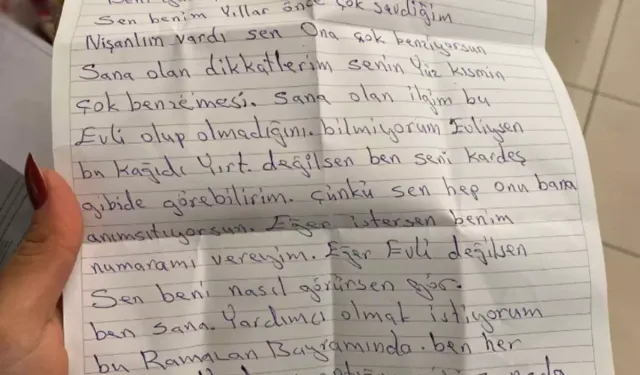 Sen benim Yıllar önce çok sevdiğim
Nişanlım vardı sen Ona çok benziyorsun
Sana olan dikkatlerim senin Yüz kısmın
çok benzemesi. Sana olan ilgim bu
Evli olup olmadığını. bilmiyorum Evliysen
bu kağıdı Yırt. değilsen ben seni kardeş
gibide görebilirim. çünkü sen hep onu bana
anımsıtıyorsun. Eğer istersen benim
numaramı vereyim. Eğer Evli değilsen
Sen beni nasıl görürsen gör.
ben sana. Yardımcı olmak istiyorum
bu Ramazan Bayramında. ben her